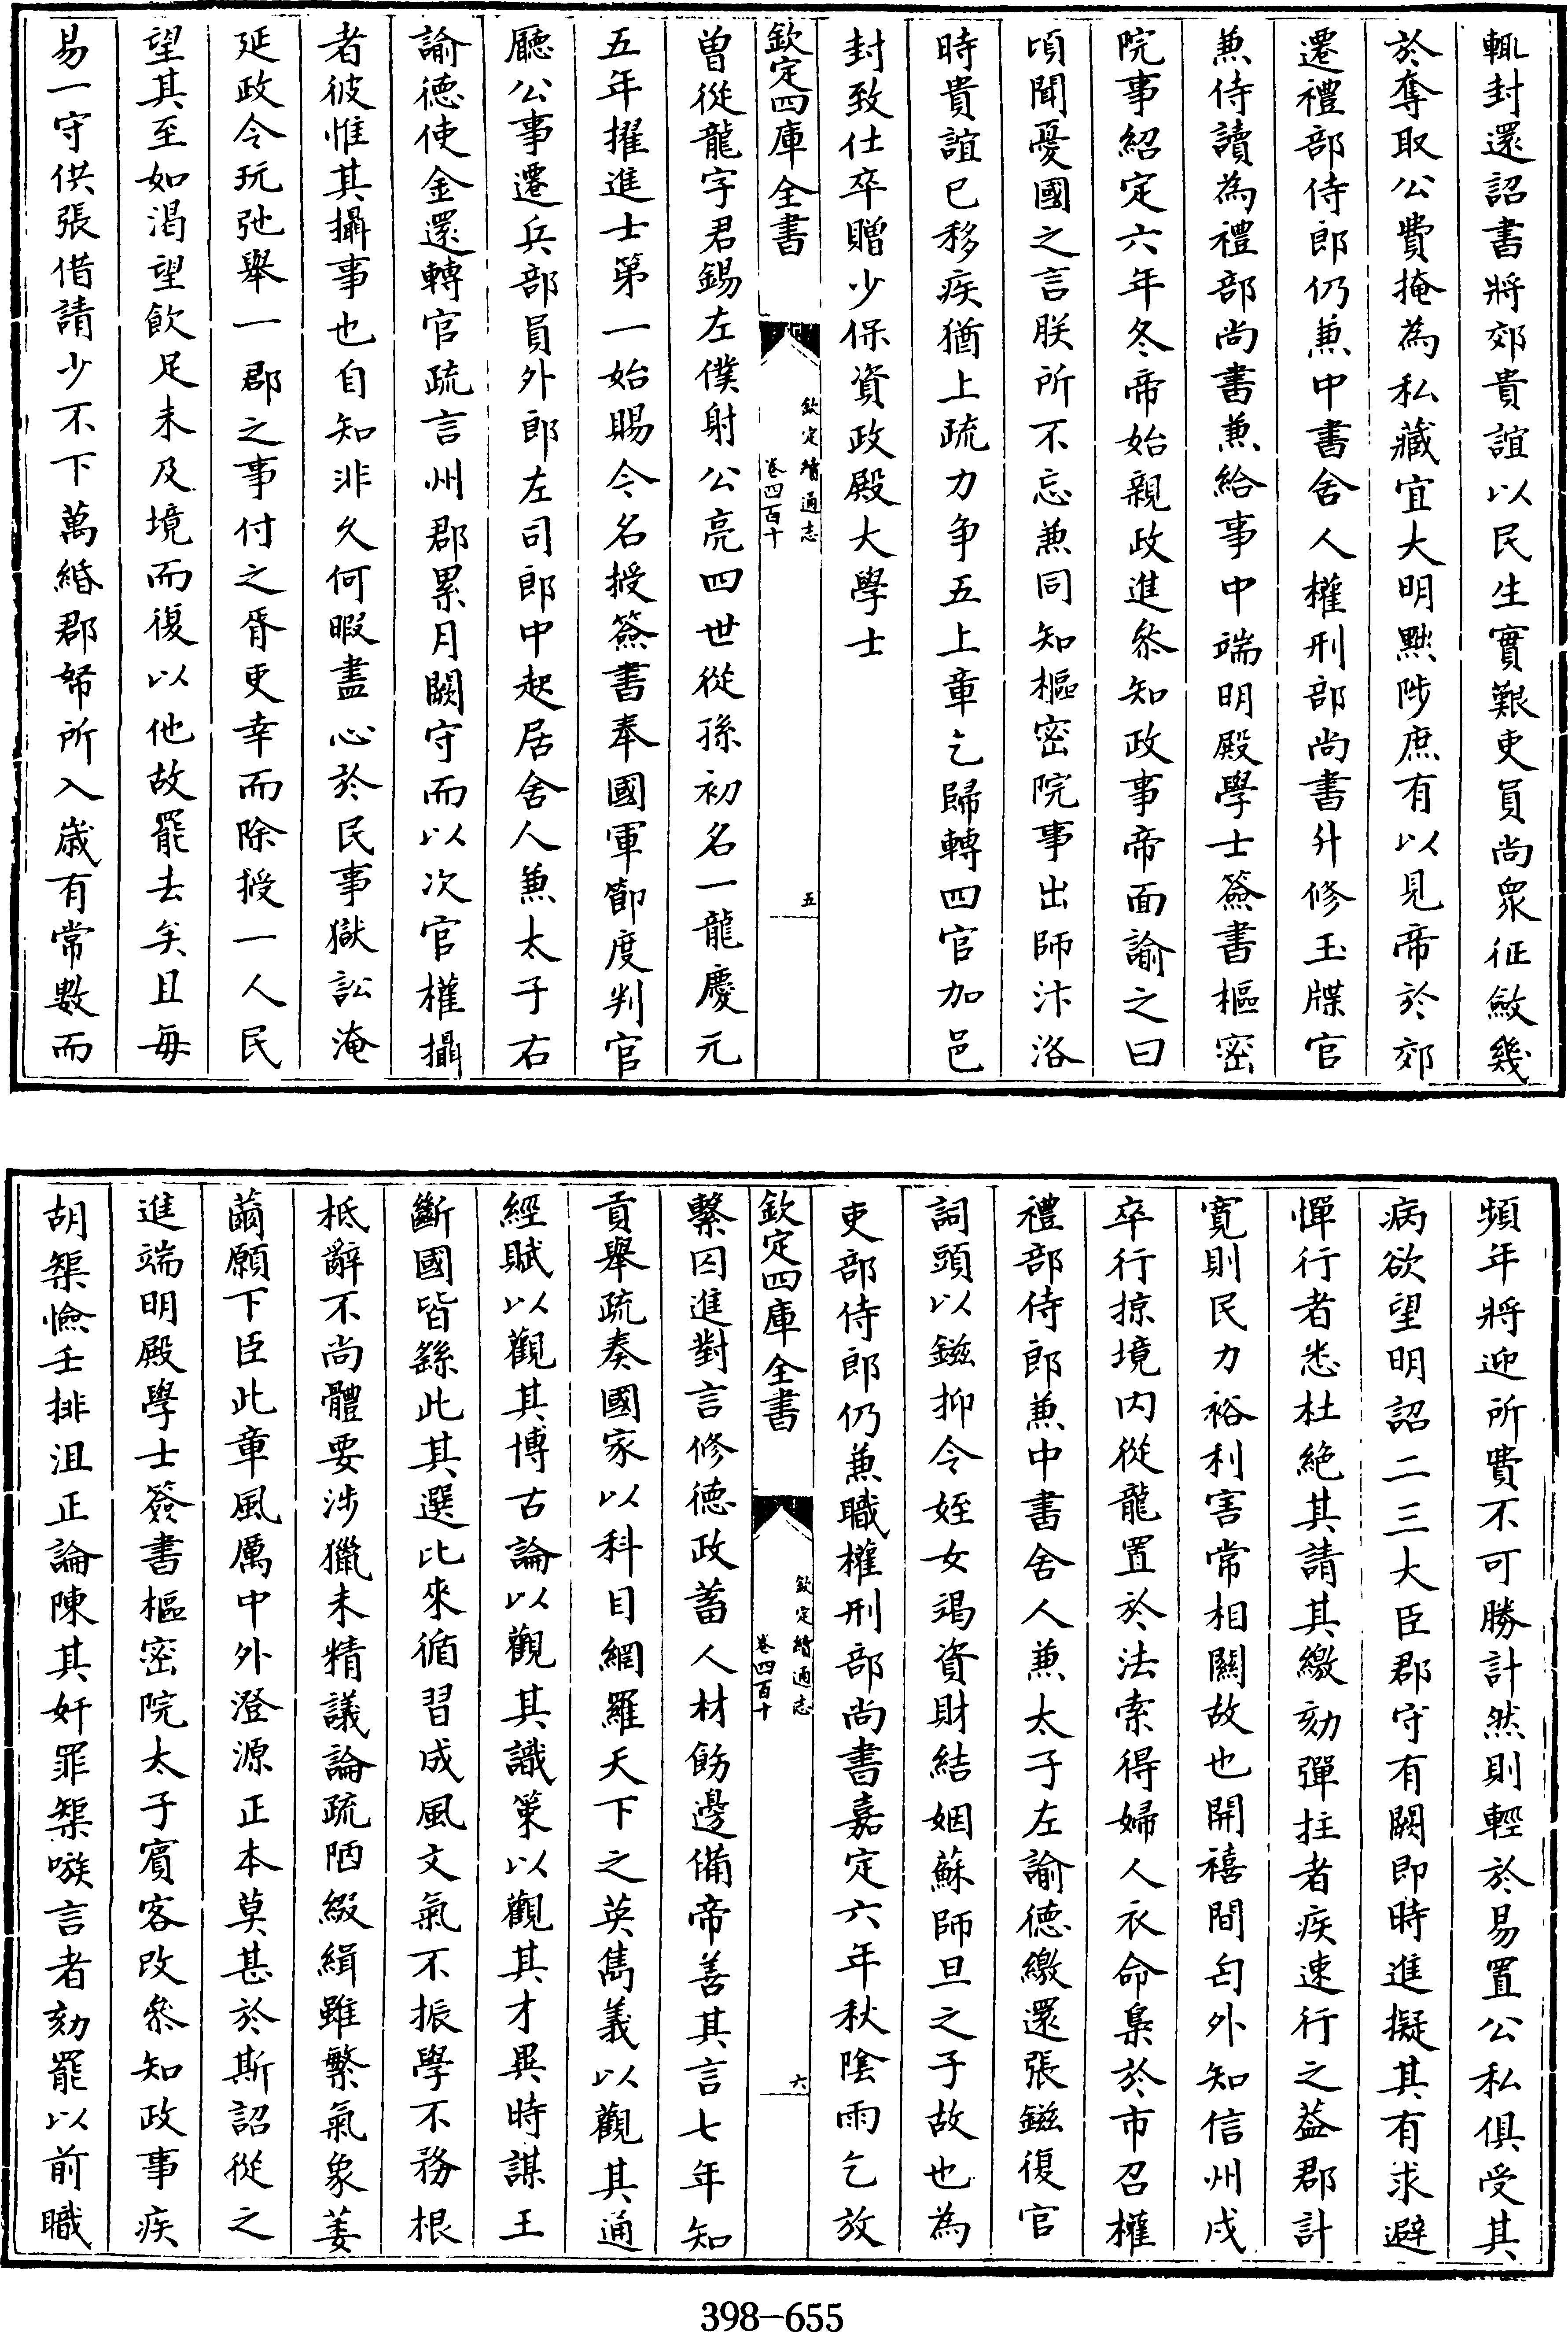 輒封還詔書將郊貴誼以民生實艱吏員尚衆征斂幾
於奪取公費掩為私藏宜大明黜陟庶有以見帝於郊
遷禮部侍郎仍兼中書舍人權刑部尚書升修玉牒官
兼侍讀為禮部尚書兼給事中端明殿學士簽書樞密
院事紹定六年冬帝始親政進叅知政事帝面諭之曰
頃聞憂國之言朕所不忘兼同知樞密院事出師汴洛
時貴誼已移疾猶上疏力争五上章乞歸轉四官加邑
封致仕卒贈少保資政殿大學士
欽定四庫全書
欽定續通志
卷四百十
五
曾從龍字君錫左僕射公亮四世從孫初名一龍慶元
五年擢進士第一始賜今名授簽書奉國軍節度判官
廳公事遷兵部員外郎左司郎中起居舍人兼太子右
諭德使金還轉官疏言州郡累月闕守而以次官權攝
者彼惟其攝事也自知非久何暇盡心於民事獄訟淹
延政令玩弛舉一郡之事付之胥吏幸而除授一人民
望其至如渴望飲足未及境而復以他故罷去矣且每
易一守供張借請少不下萬緡郡帑所入歲有常數而
頻年將迎所費不可勝計然則輕於易置公私俱受其
病欲望明詔二三大臣郡守有闕即時進擬其有求避
憚行者悉杜絶其請其繳劾彈拄者疾速行之葢郡計
寛則民力裕利害常相關故也開禧間匄外知信州戍
卒行掠境内從龍置於法索得婦人衣命梟於市召權
禮部侍郎兼中書舍人兼太子左諭德繳還張鎡復官
詞頭以鎡抑令姪女竭資財結姻蘇師旦之子故也為
吏部侍郎仍兼職權刑部尚書嘉定六年秋隂雨乞放
欽定四庫全書
欽定續通志
卷四百十
六
繫囚進對言修德政蓄人材飭邊備帝善其言七年知
貢舉疏奏國家以科目網羅天下之英雋義以觀其通
經賦以觀其博古論以觀其識策以觀其才異時謀王
斷國皆繇此其選比來循習成風文氣不振學不務根
柢辭不尚體要涉獵未精議論疏陋綴緝雖繁氣象萎
薾願下臣此章風厲中外澄源正本莫甚於斯詔從之
進端明殿學士簽書樞密院太子賓客改叅知政事疾
胡榘憸壬排沮正論陳其奸罪榘嗾言者劾罷以前職
398-655